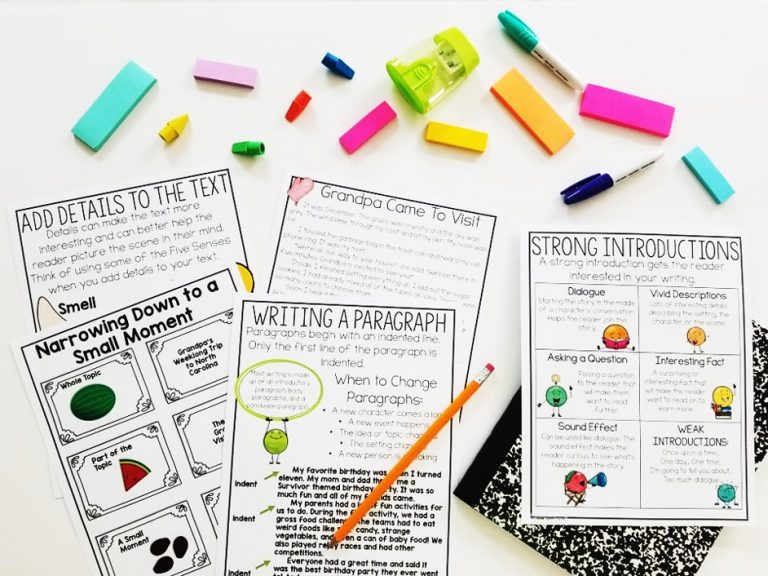 ADD DETAILS TO THE TEXT
Details can make the text more
interesting and can better help the
reader picture the scene in their mind.
Think of using some of the Five Senses
when you add details to your text.
Smell
Grandpa Came To Visit
It was December. The grass was crunchy and the sky was
grey. The wind blew through my coat and
I tossed the garbage bag in the trash can and heard my cell
Narrowing Down to a
Small Moment
Whole Topic
Grandpa's
Weeklong Trip
to North
Carolina
Part of the
Topic
The
Gr
Vis
A Small
Moment
WRITING A PARAGRAPH
Paragraphs begin with an indented line.
Only the first line of the paragraph is
indented.
Most writing is made
up of an introductory
paragraph, body
paragraphs, and a
conclusion paragraph.
When to Change
Paragraphs:
• A new character comes alo
• A new event happens
• The idea or topic chang
• The setting change
• A new person is speaking
Indent
My favorite birthday was when I turned
eleven. My mom and dad me a
Survivor themed birthday party. It was so
much fun and all of my friends came.
Indent
My parents had a lot of fun activities for
us to do. During the first activity, we had a
gross food challenge. The teams had to eat
weird foods like candy, strange
vegetables, and even a can of baby food! We
also played relay races and had other
competitions.
Indent
Everyone had a great time and said it
was the best birthday party they ever went
STRONG INTRODUCTIONS
A strong introduction gets the reader
interested in your writing.
Dialogue
Starting the story in the middle
of a character's conversation.
Helps the reader join the
story.
Vivid Descriptions
Lots of interesting details
describing the setting, the
character, or the scene.
Asking a Question
Posing a question to
the reader that will
make them want to
read further.
Interesting Fact
A surprising or
interesting fact that
will make the reader
want to read on to learn
more.
Sound Effect
Can be used like dialogue. The
sound effect makes the
reader curious to see what's
happening in the story.
WEAK
INTRODUCTIONS:
Once upon a time...
One day... One time...
I'm going to tell you about...
Too much dialogue...